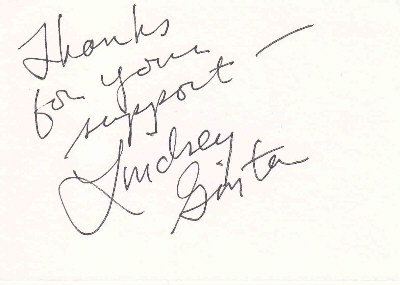 Thanks
for your
support —
Lindsey
Ginter